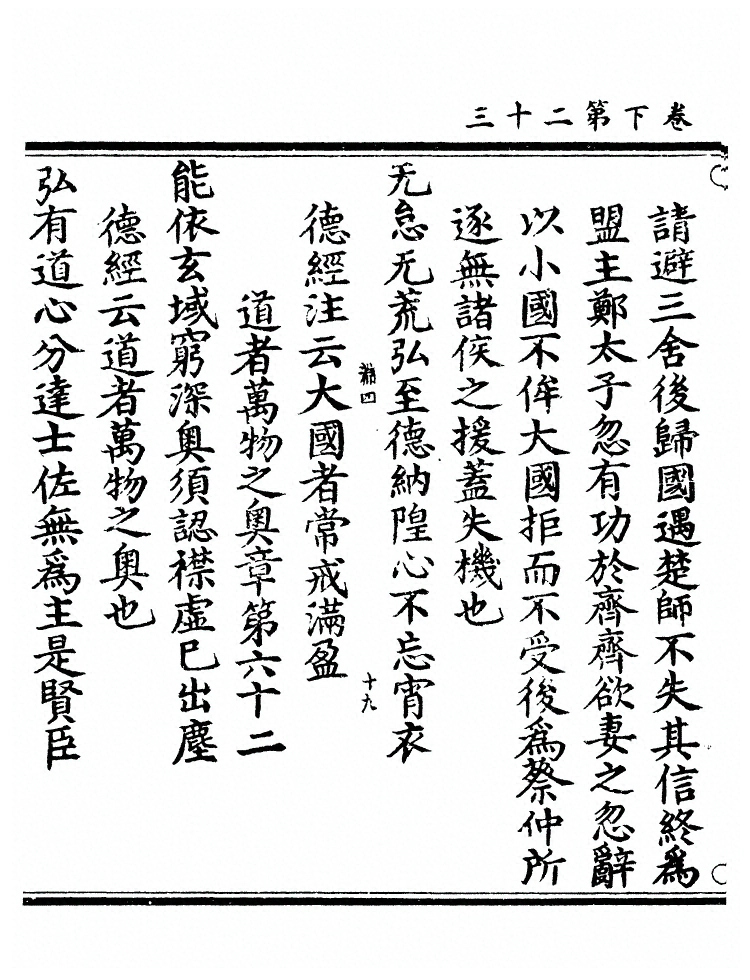 卷下第二十三
請避三舍後歸國遇楚師不失其信終爲
盟主鄭太子忽有功於齊齊欲妻之忽辭
以小國不侔大國拒而不受後爲蔡仲所
逐無諸侯之援蓋失機也
无怠无荒弘至德納隍心不忘宵衣
四 十九
德經注云大國者常戒滿盈
道者萬物之奧章第六十二
能依玄域窮深奧須認襟虛巳出塵
德經云道者萬物之奧也
弘有道心分達士佐無爲主是賢臣